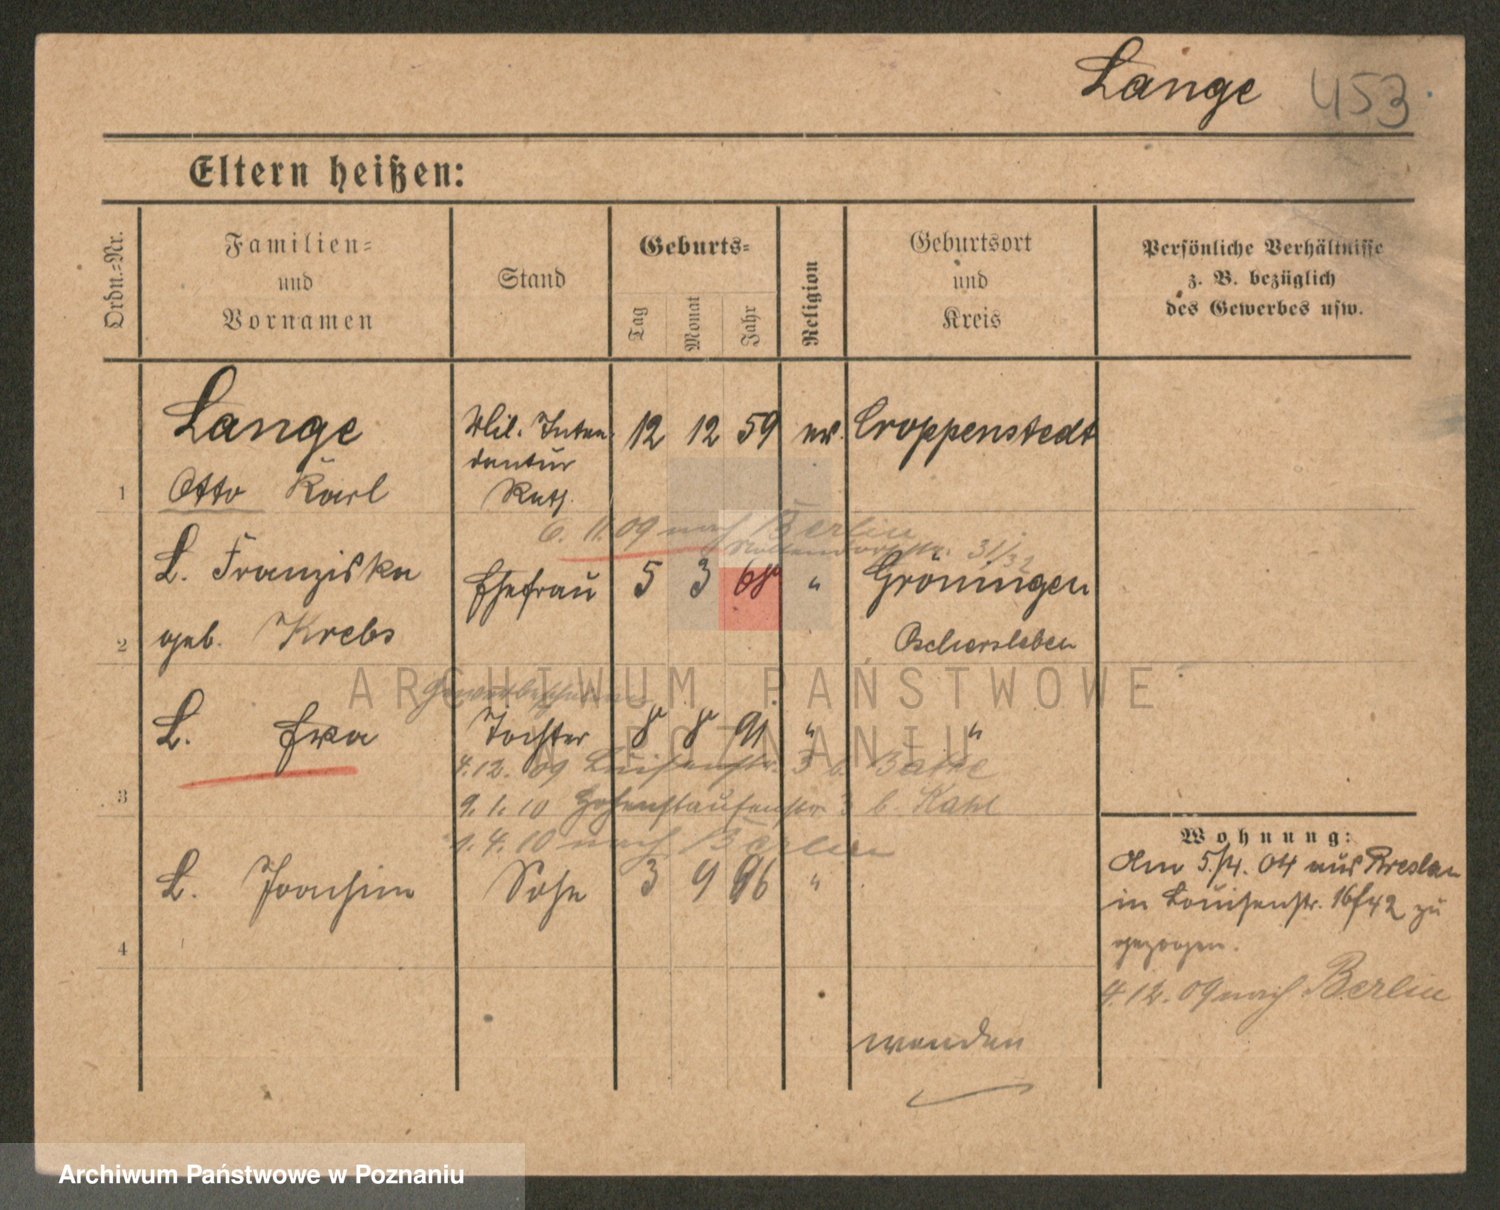 Lange 453
Eltern heißen:
Ordn.=Nr.
Familien=
und
Vornamen
Stand
Geburts=
Tag
Monat
Jahr
Religion
Geburtsort
und
Kreis
Persönliche Verhältnisse
z. B. bezüglich
des Gewerbes usw.
Lange Mil. Inten 12 12 59 ev. Croppenstedt
dantur
1 Otto Karl Rath
6. 11. 09 nach Berlin
31/32
L. Franziska Ehefrau 5 3 68 " Gröningen
2 geb. Krebs Oschersleben
L. Eva Tochter 8 8 91 " "
4.12. 09 Luisenstr. 3 b.
3
9. 1. 10 Hohenstaufenstr 3 b. Kahl
1. 4. 10 nach Berlin
L. Joachim Sohn 3 9 96 "
4
Wohnung:
Am 5./4. 04 aus Breslau
in Louisenstr. 16/42 zu
gezogen.
4.12. 09 nach Berlin
wenden
ARCHIWUM PAŃSTWOWE
W POZNANIU
Archiwum Państwowe w Poznaniu